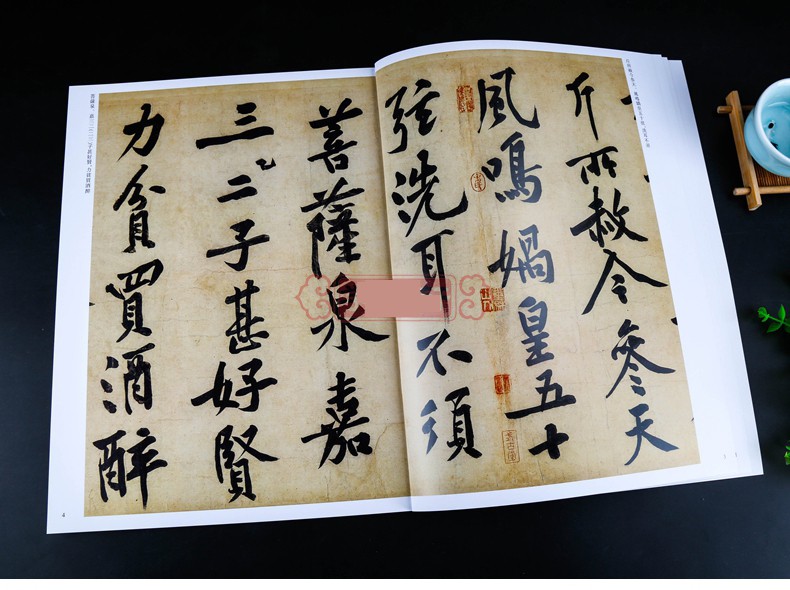 斤所赦今參天
風鳴媧皇五十
弦洗耳不須
菩薩泉嘉
三二子甚好賢
力貧買酒醉
4